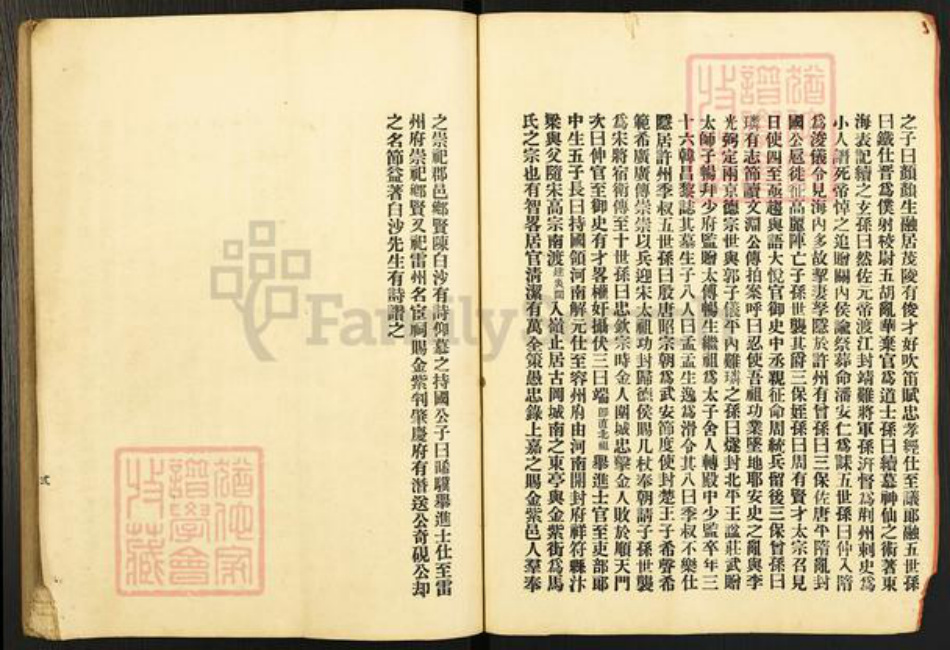 之子曰顏顏生融居茂陵有俊才好吹笛賦忠孝經仕至議郎融五世孫
曰鐵仕晉爲僕射校尉五胡亂華棄官爲道士孫曰續慕神仙之術著東
海表記續之玄孫曰然佐元帝渡江封端難將軍孫汧督爲荆州刺史爲
小人譖死帝悼之追贈關內侯諡祭葬命潘安仁爲誄五世孫曰仲入隋
爲浚儀令見海內多故挈妻孥隱於許州有曾孫曰三保佐唐平隋亂封
國公扈徒征高麗陣亡子孫世襲其爵三保姪孫曰周有賢才太宗召見
日使四至敁趨與語大悅官御史中丞親征命周統兵留後三保曾孫曰
璘有志節讀文淵公傳拍案呼曰忍使吾祖功業墜地耶安史之亂與李
光弼定兩京德宗世與郭子儀平內難璘之孫曰燧封北平王諡莊武贈
太師子暢拜少府監贈太傅暢生繼祖爲太子舍人轉殿中少監卒年三
十六韓昌黎誌其墓生子八人曰孟孟生逸爲滑令其八曰季叔不樂仕
隱居許州季叔五世孫曰殷唐昭宗朝爲武安節度使封楚王子希聲希
範希廣廣傳崇崇以兵迎宋太祖功封歸德侯賜几杖奉朝請子孫世襲
爲宋將宿衛傳至十世孫曰忠欽宗時金人圍城忠擊金人敗於順天門
次曰仲官至御史有才畧權奸攝伏三曰端卽直北祖舉進士官至吏部郎
中生五子長曰持國領河南解元仕至容州府由河南開封府祥符縣汴
梁與父隨宋高宗南渡 入嶺止居古岡城南之東亭與金紫街爲馬
氏之宗也有智畧居官淸潔有萬全策愚忠錄上嘉之賜金紫邑人羣奉
之崇祀郡邑鄉賢陳白沙有詩仰慕之持國公子曰晞驥舉進士仕至雷
州府崇祀鄉賢又祀雷州名宦祠賜金紫判肇慶府有潛送公奇硯公却
之名節益著白沙先生有詩讚之
弍
猶他家
譜學會
收藏
FamilySearch